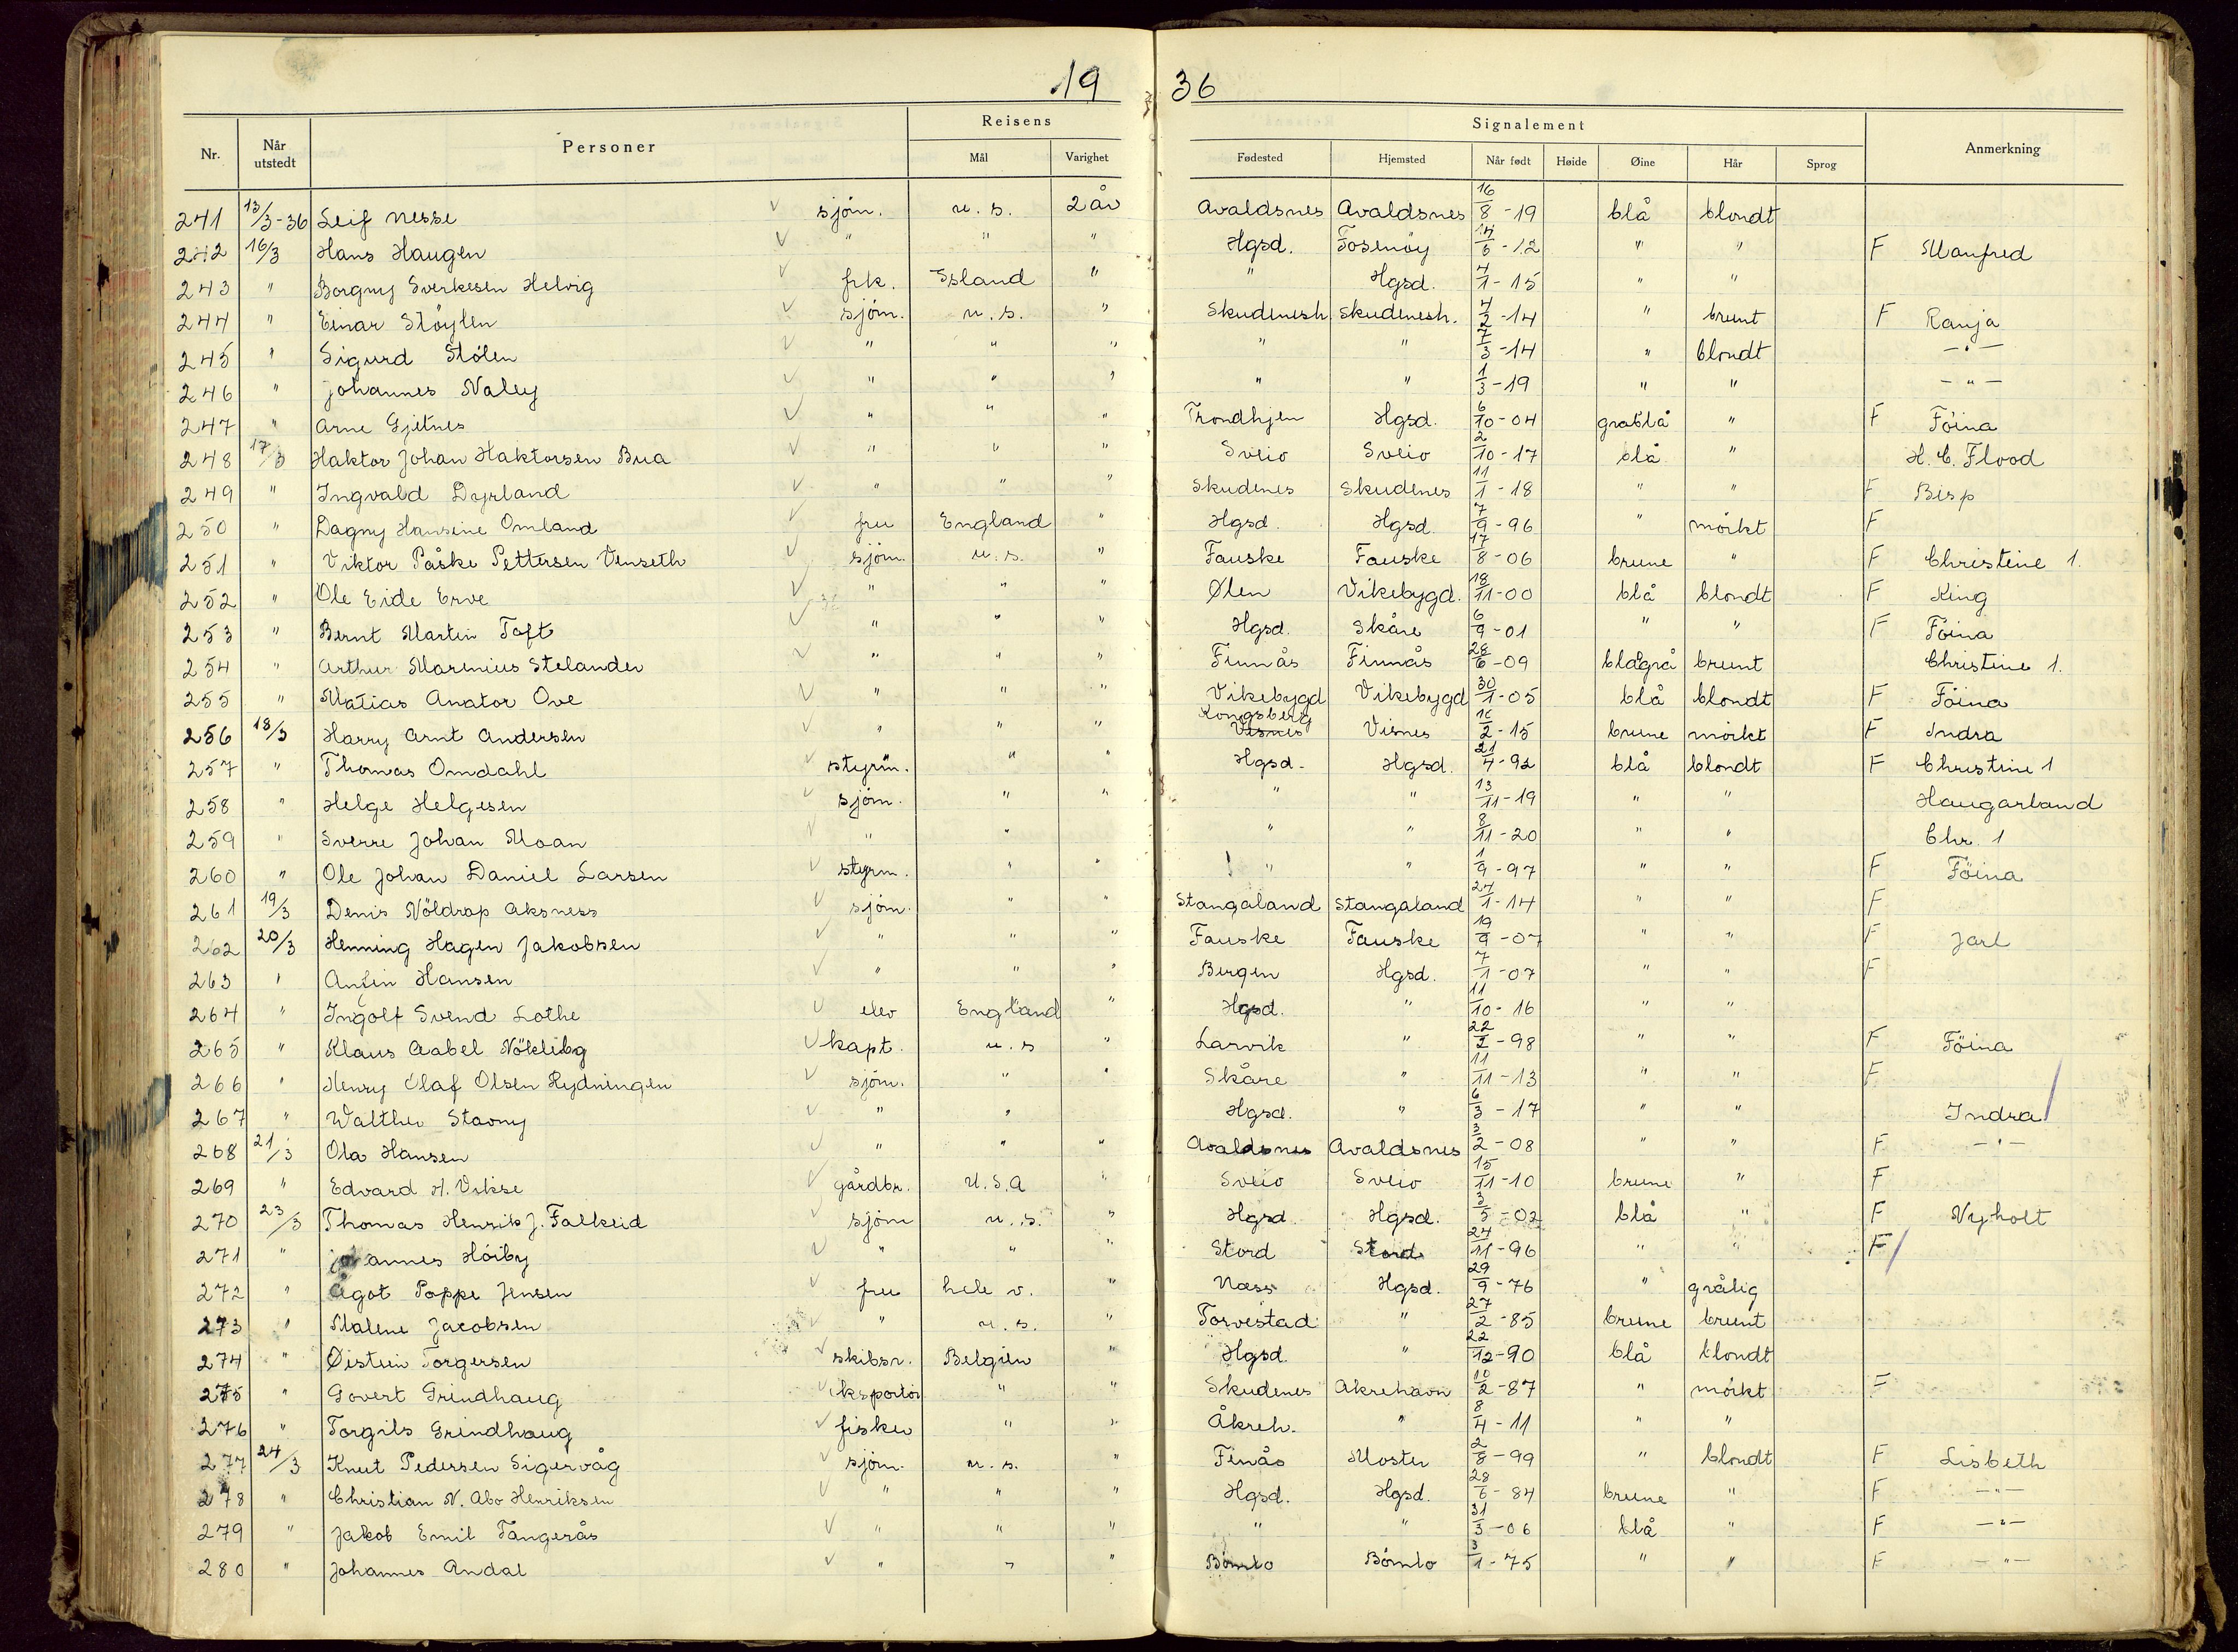 19 36
Nr. Når utstedt Personer Reisens Mål Varighet Signalement Fødested Hjemsted Når født Høide Øine Hår Sprog Anmerkning
241 13/3-36 Leif Nesse sjöm. u. s. 2 år Avaldsnes Avaldsnes 16/8-19 blå blondt
242 16/3 Hans Haugen " " " Hgsd. Fosenöy 14/6-12 " " F Manfred
243 " Borgny Sverkesen Helvig frk. Island " " Hgsd. 4/1-15 " "
244 " Einar Stöylen sjöm. u. s. " Skudenesh. Skudenesh. 4/2-14 " brunt F Ranja
245 " Sigurd Stölen " " " " " 7/3-14 " blondt -"-
246 " Johannes Naley " " " " " 1/3-19 " " -"-
247 " Arne Gjetnes " " " Trondhjen Hgsd. 6/10-04 gråblå " F Föina
248 17/3 Haktor Johan Haktorsen Bua " " " Sveio Sveio 2/10-17 blå " H. C. Flood
249 " Ingvald Dyrland " " " Skudenes Skudenes 11/1-18 " " F Bisp
250 " Dagny Hansine Omland fru England " Hgsd. Hgsd. 7/9-96 " mörkt F
251 " Viktor Påske Pettersen Venseth sjöm. u. s. " Fauske Fauske 17/8-06 brune " F Christine 1.
252 " Ole Eide Erve " " " Ølen Vikebygd. 18/11-00 blå blondt F King
253 " Bernt Martin Toft " " " Hgsd. Skåre 6/9-01 " " F Föina
254 " Arthur Marenius Stelander " " " Finnås Finnås 28/6-09 blågrå brunt Christine 1.
255 " Matias Anator Ove " " " Vikebygd Vikebygd 30/1-05 blå blondt F Föina
256 18/3 Harry Arnt Andersen " " " Kongsberg Visnes Visnes 16/2-15 brune mörkt F Indra
257 " Thomas Omdahl styrm. " " Hgsd. Hgsd. 21/4-92 blå blondt F Christine 1
258 " Helge Helgesen sjöm. " " " " 13/11-19 " " Haugarland
259 " Sverre Johan Moan " " " " 8/11-20 " " Chr. 1
260 " Ole Johan Daniel Larsen styrm. " " " " 1/9-97 " " F Föina
261 19/3 Denis Nöldrap Aksness sjöm. " " Stangaland Stangaland 27/1-14 " " F
262 20/3 Henning Hagen Jakobsen " " " Fauske Fauske 19/9-07 " " F Jarl
263 " Anfin Hansen " " " Bergen Hgsd. 7/1-07 " " F
264 " Ingolf Svend Lothe elev England " Hgsd. " 11/10-16 " "
265 " Klaus Aabel Nöklibg kapt. u. s " Larvik " 22/2-98 " " F Föina
266 " Henry Olaf Olsen Rydningen sjöm. " " Skåre " 11/11-13 " " F
267 " Walther Stavny " " Hgsd. " 6/3-17 " " Indra
268 21/3 Ola Hansen " " " Avaldsnes Avaldsnes 3/2-08 " " F -"-
269 " Edvard H. Vikse gårdbr. U.S.A " Sveio Sveio 15/11-10 brune " F
270 23/3 Thomas Henrik J. Falkeid sjöm u. s. " Hgsd. Hgsd. 3/5-02 blå " F Nyholt
271 " Johannes Höiby " " " Stord Stord 24/11-96 " " F
272 " Ågot Poppe Jensen fru hele v. " Næss Hgsd. 29/9-76 " grålig
273 " Malene Jacobsen " u. s. " Torvestad " 27/2-85 brune brunt
274 " Øistein Torgersen skibsr. Belgien " Hgsd. " 22/12-90 blå blondt
275 " Govert Grindhaug eksportör " " Skudenes Akrehavn 10/2-87 " mörkt F
276 " Torgils Grindhaug fisker " " Åkreh. " 8/4-11 " "
277 24/3 Knut Pedersen Sigervåg sjöm. u. s. " Finås Moster 2/8-99 " blondt F Lisbeth
278 " Christian N. Abo Henriksen " " " Hgsd. Hgsd. 28/6-84 brune " F -"-
279 " Jakob Emil Tangerås " " " " " 31/3-06 blå " F -"-
280 " Johannes Andal " " " Bömlo Bömlo 3/1-75 " " F -"-